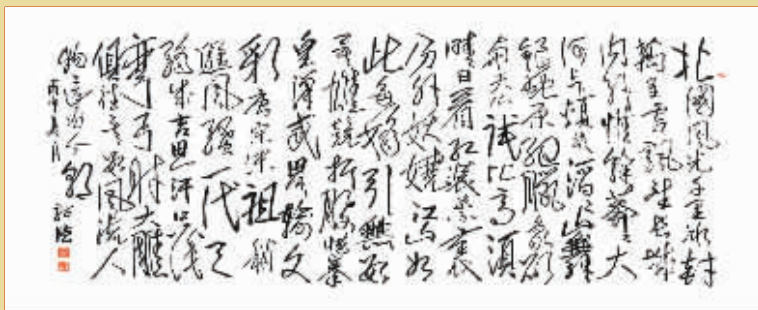 北國風光千里冰封
萬里雪飄望長城
内外惟餘莽莽大
河上下頓失滔滔山舞
銀蛇原馳臘象欲
與天公試比高須
晴日看紅裝素裹
分外妖嬈江山如
此多嬌引無數
英雄競折腰惜秦
皇漢武略輸文
彩唐宗宋祖稍
遜風騷一代天
驕成吉思汗只識
彎弓射大雕
俱往矣數風流人
物還看今朝